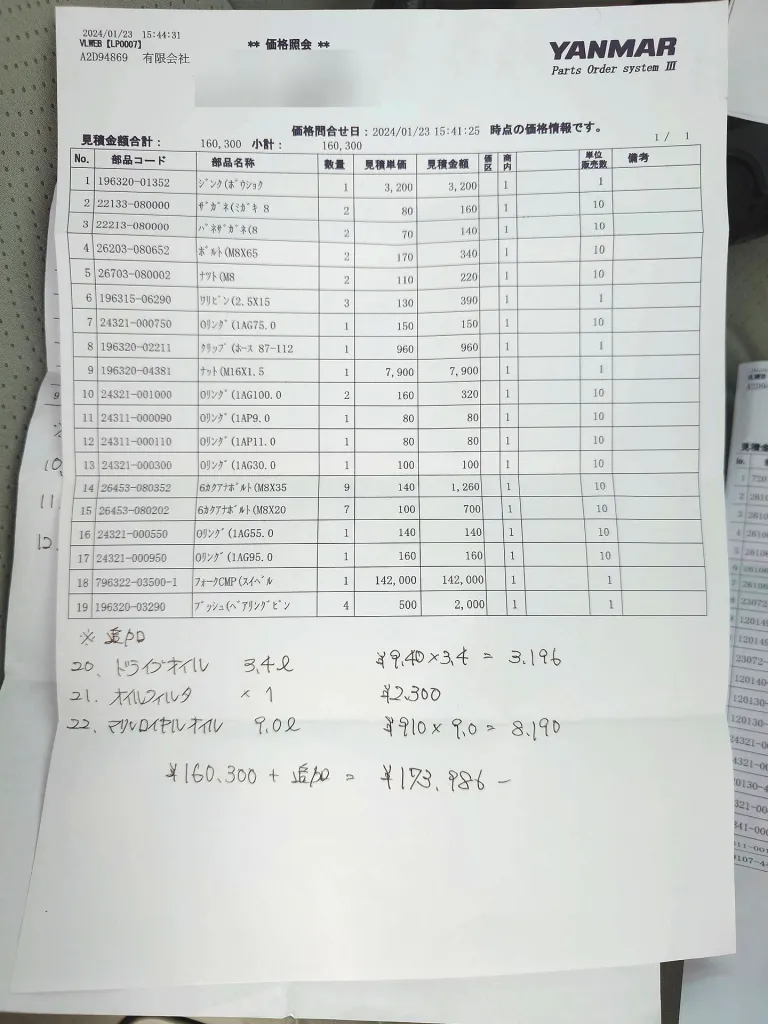 2024/01/23 15:44:31
VLWEB【LP0007】
A2D94869 有限会社
** 価格照会 **
YANMAR
Parts Order system Ⅲ
価格問合せ日：2024/01/23 15:41:25 時点の価格情報です。
見積金額合計： 160,300 小計： 160,300
1/ 1
No. 部品コード 部品名称 数量 見積単価 見積金額 価区 商内 単位販売数 備考
1 196320-01352 ｼﾞﾝｸ(ﾎﾞｳｼｮｸ 1 3,200 3,200 1 1
2 22133-080000 ｻﾞｶﾞﾈ(ﾐｶﾞｷ 8 2 80 160 1 10
3 22213-080000 ﾊﾞﾈｻﾞｶﾞﾈ(8 2 70 140 1 10
4 26203-080652 ﾎﾞﾙﾄ(M8X65 2 170 340 1 10
5 26703-080002 ﾅﾂﾄ(M8 2 110 220 1 10
6 196315-06290 ﾜﾘﾋﾟﾝ(2.5X15 3 130 390 1 1
7 24321-000750 Oﾘﾝｸﾞ(1AG75.0 1 150 150 1 10
8 196320-02211 ｸﾗｯﾌﾟ(ﾎｰｽ 87-112 1 960 960 1 1
9 196320-04381 ﾅｯﾄ(M16X1.5 1 7,900 7,900 1 1
10 24321-001000 Oﾘﾝｸﾞ(1AG100.0 2 160 320 1 10
11 24311-000090 Oﾘﾝｸﾞ(1AP9.0 1 80 80 1 10
12 24311-000110 Oﾘﾝｸﾞ(1AP11.0 1 80 80 1 10
13 24321-000300 Oﾘﾝｸﾞ(1AG30.0 1 100 100 1 10
14 26453-080352 6ｶｸｱﾅﾎﾞﾙﾄ(M8X35 9 140 1,260 1 10
15 26453-080202 6ｶｸｱﾅﾎﾞﾙﾄ(M8X20 7 100 700 1 10
16 24321-000550 Oﾘﾝｸﾞ(1AG55.0 1 140 140 1 10
17 24321-000950 Oﾘﾝｸﾞ(1AG95.0 1 160 160 1 10
18 796322-03500-1 ﾌｫｰｸCMP(ｽｲﾍﾞﾙ 1 142,000 142,000 1 1
19 196320-03290 ﾌﾞｯｼｭ(ﾍﾞｱﾘﾝｸﾞﾋﾟﾝ 4 500 2,000 1 1
※ 追加
20、ドライブオイル 3.4ℓ ¥9.40×3.4 = 3.196
21. オイルフィルタ × 1 ¥2.300
22、マリンロイヤルオイル 9.0ℓ ¥910×9.0= 8.190
¥160.300 + 追加 = ¥173.986 -
10.
11.
12.